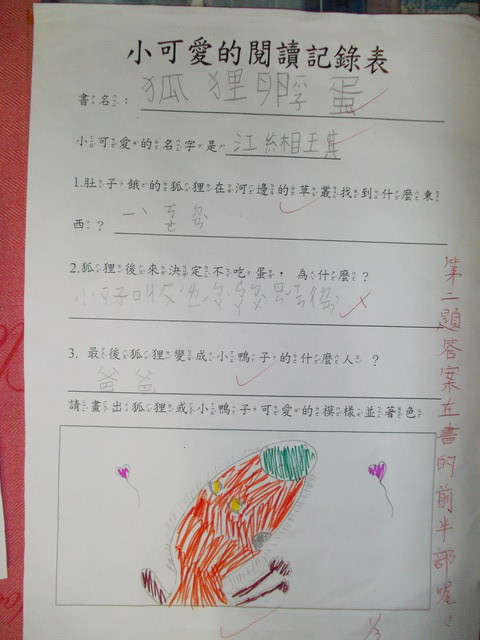 小可愛的閱讀記錄表
書名： 狐狸孵蛋
小可愛的名字是 江緗琪
1.肚子餓的狐狸在河邊的草叢找到什麼東
西？ 一、ㄜ 蛋
2.狐狸後來決定不吃蛋，為什麼？
小
3. 最後狐狸變成小鴨子的什麼人 ？
爸爸
請畫出狐狸或小鴨子可愛的模樣並著色
第二題答案在書的前半部喔！
1/3